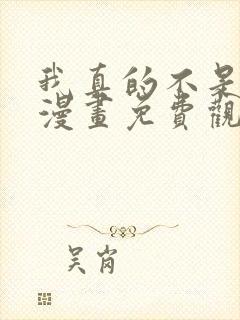 我真的不是
漫畫免費觀
吴肖